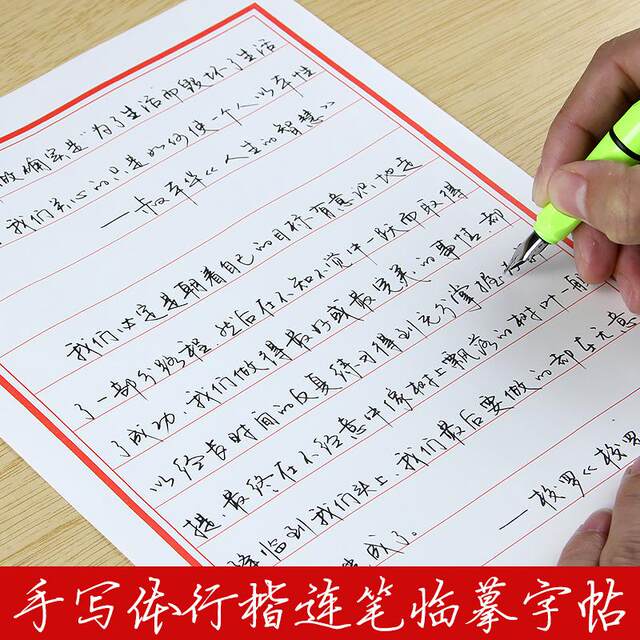 做确实是“为了生活而毁坏了生活
我们关心的只是如何使一个人以本性
——叔本华《人生的智慧》
我们决定是朝着自己的目标有意识地走
了一部分路程，然后在不知不觉中一跃而取得
了成功，我们做得最好或最完美的事情都
以经长时间的反复练习得到充分掌握
捷，最终在不经意中像树上飘落的树叶一般
降临到我们头上，我们最后要做的都在无意
成了。
——梭罗《梭罗
手写体行楷连笔临摹字帖